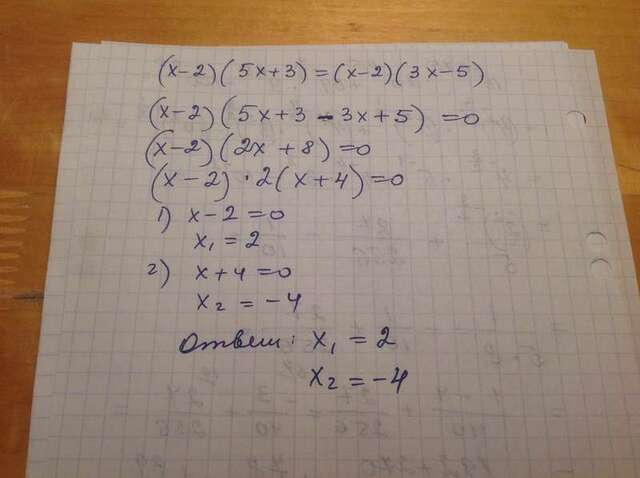 (x-2)(5x+3)=(x-2)(3x-5)
(x-2)(5x+3-3x+5)=0
(x-2)(2x+8)=0
(x-2)·2(x+4)=0
1) x-2=0
x₁=2
2) x+4=0
x₂=-4
Ответ: x₁=2
x₂=-4